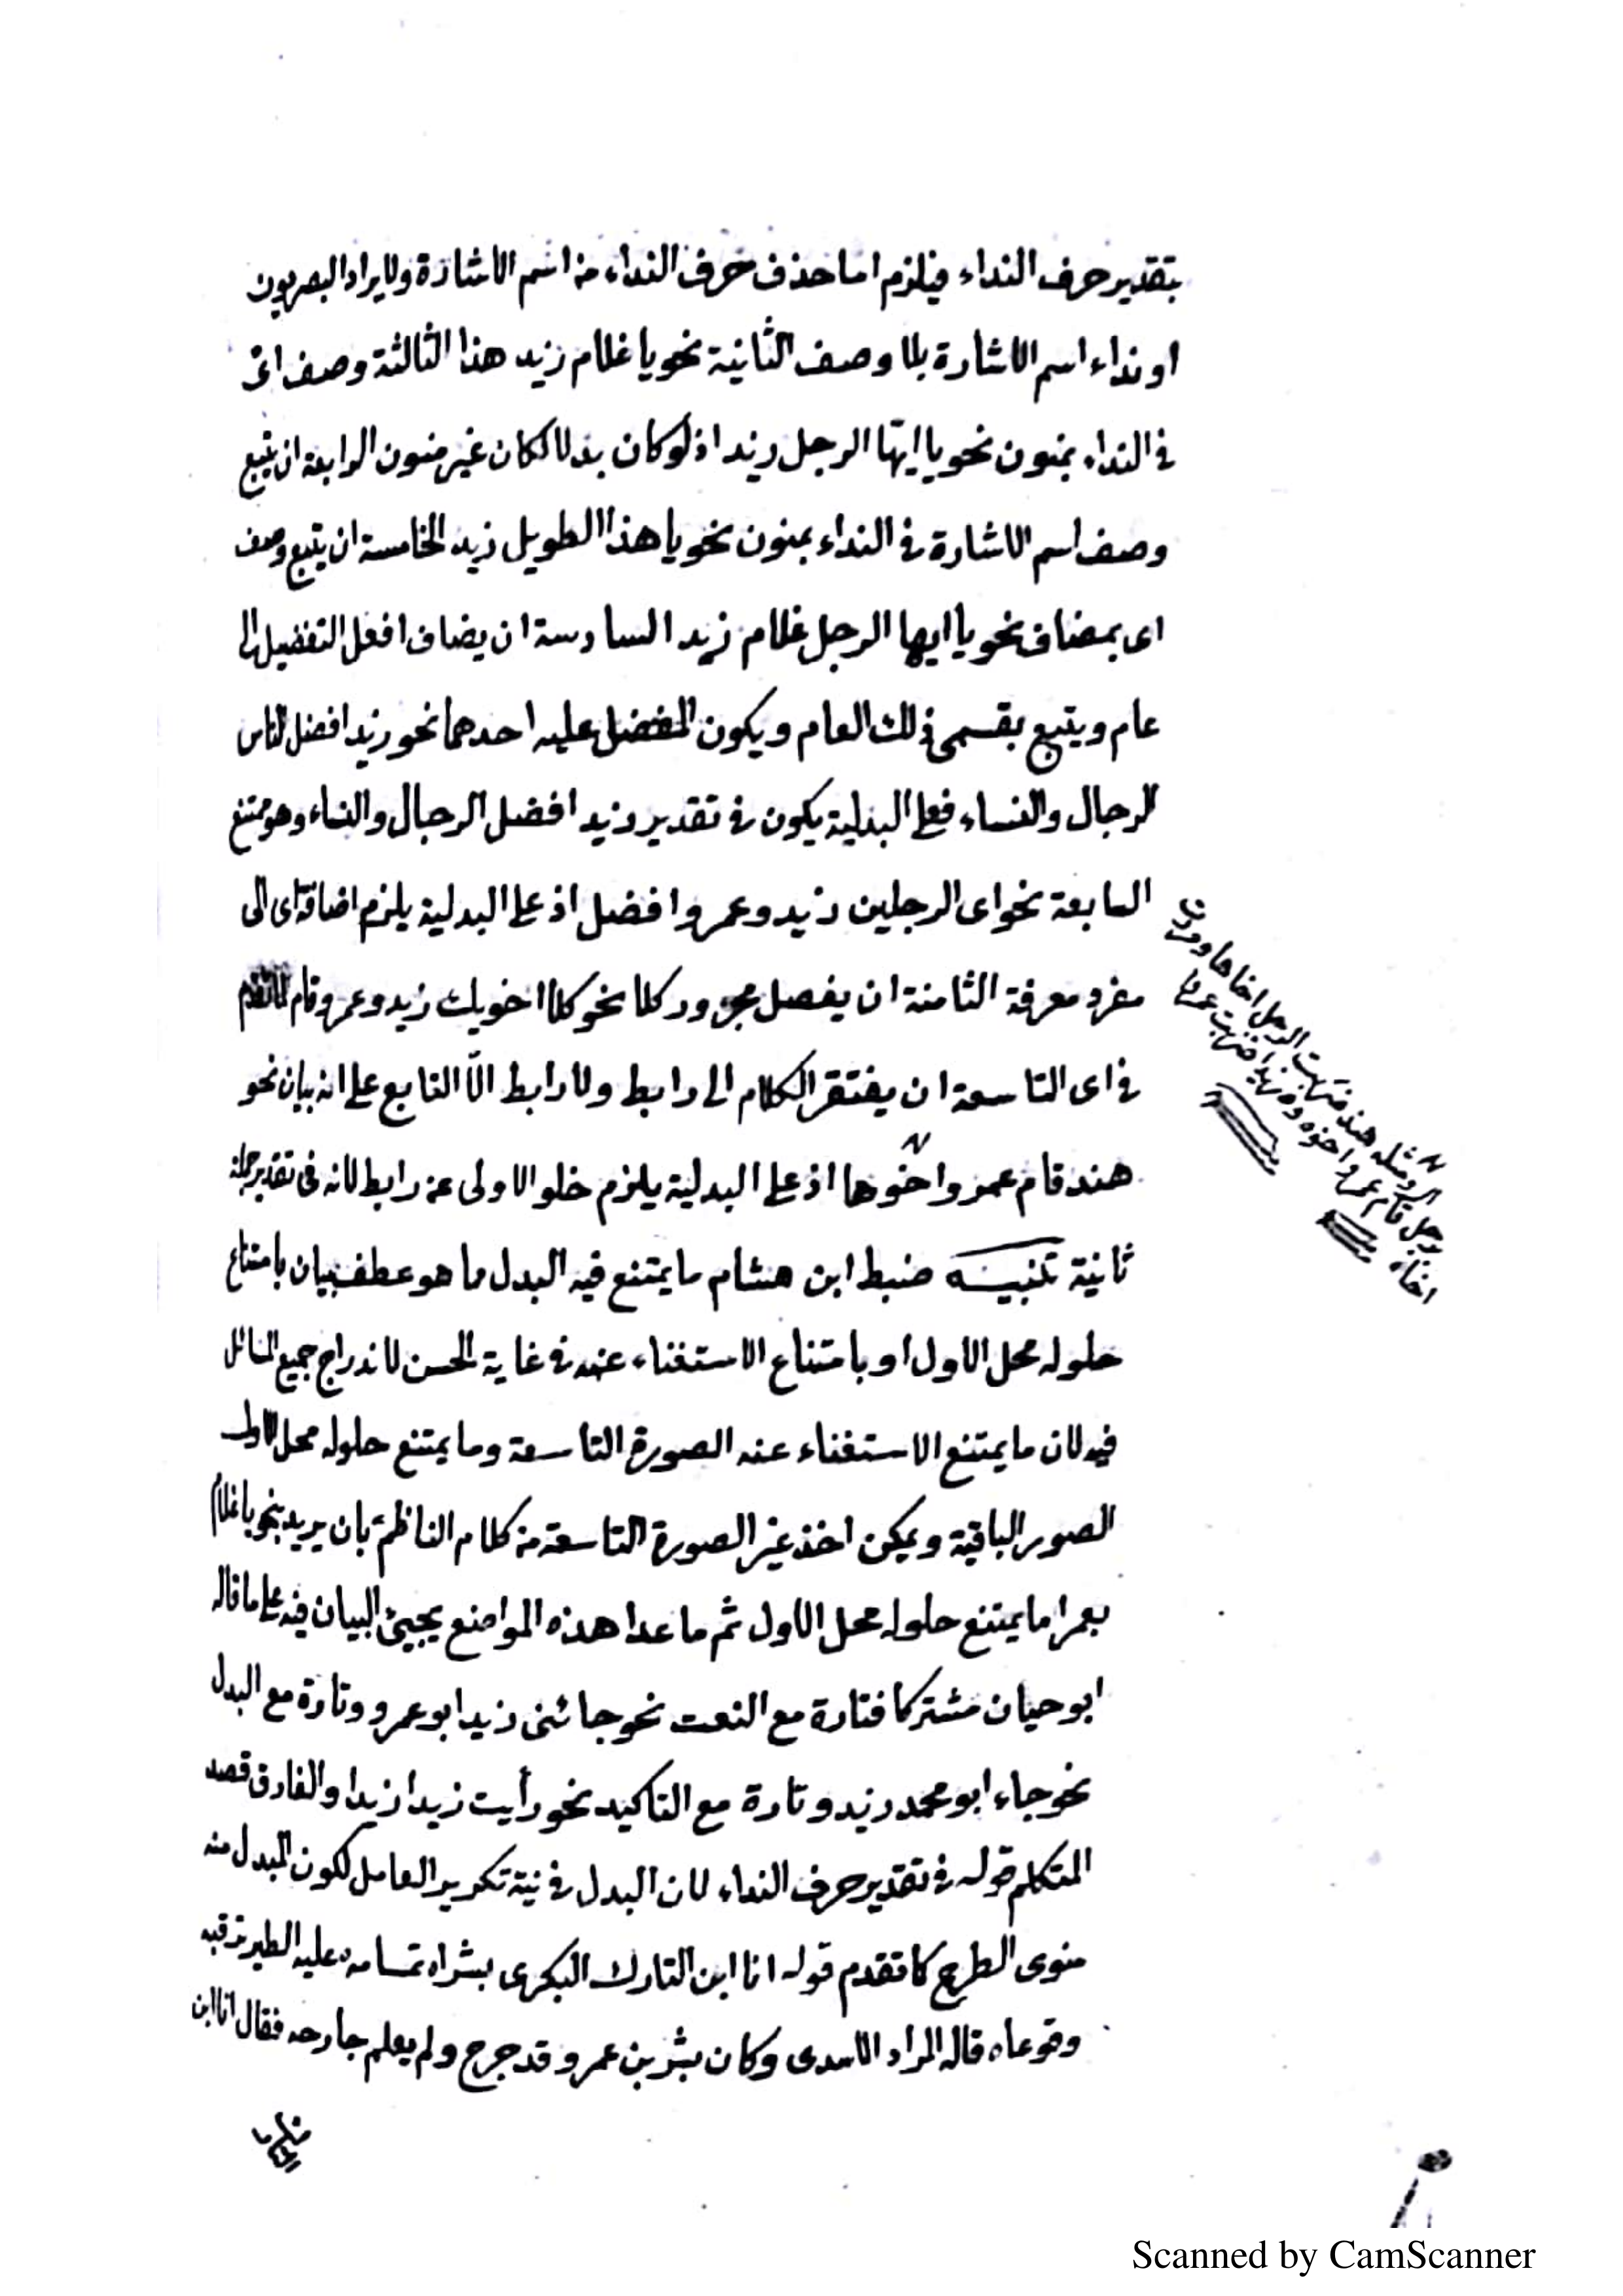 بتقدير حرف النداء فيلزم اما حذف حرف النداء من اسم الاشارة ولا يراد البصريون
او نداء اسم الاشارة بلا وصف الثانية نحو يا غلام زيد هذا الثالثة وصف اىّ
فى النداء بمنون نحو يا ايّها الرجل زيد اذ لو كان بدلا لكان غير منون الرابعة ان يتبع
وصف اسم الاشارة فى النداء بمنون نحو يا هذا الطويل زيد الخامسة ان يتبع وصف
اى بمضاف نحو يا ايها الرجل غلام زيد السادسة ان يضاف افعل التفضيل الى
عام ويتبع بقسمى ذلك العام ويكون المفضل عليه احدهما نحو زيد افضل الناس
الرجال والنساء فعلى البدلية يكون فى تقدير زيد افضل الرجال والنساء وهو ممتنع
السابعة نحو اى الرجلين زيد وعمرو افضل اذ على البدلية يلزم اضافة اى الى
مفرد معرفة الثامنة ان يفصل مجرور كلا نحو كلا اخويك زيد وعمرو قام لما تقدم
فى اى التاسعة ان يفتقر الكلام الى رابط ولا رابط الّا التابع على انه بيان نحو
هند قام عمرو اخوها اذ على البدلية يلزم خلو الاولى عن رابط لانه فى تقدير جملة
ثانية تنبيه ضبط ابن هشام ما يمتنع فيه البدل مما هو عطف بيان بامتناع
حلوله محل الاول او بامتناع الاستغناء عنه فى غاية الحسن لاندراج جميع المسائل
فيه لان ما يمتنع الاستغناء عنه الصورة التاسعة وما يمتنع حلوله محل الاول
الصور الباقية ويمكن اخذ غير الصورة التاسعة من كلام الناظم بان يريد بنحو يا غلام
يعمرا ما يمتنع حلوله محل الاول ثم ما عدا هذه المواضع يجيئ البيان فيه على ما قاله
ابو حيان مشتركا فتارة مع النعت نحو جائنى زيد ابو عمرو وتارة مع البدل
نحو جاء ابو محمد زيد وتارة مع التاكيد نحو رأيت زيدا زيدا والفارق قصد
المتكلم قوله فى تقدير حرف النداء لان البدل فى نية تكرير العامل لكون المبدل منه
منوى الطرح كما تقدم قوله انا ابن التارك البكرى بشراه تمامه عليه الطير ترقبه
وقوعاه قاله المراد الاسدى وكان بشر بن عمرو قد جرح ولم يعلم جارحه فقال انا ابن
ومثله هند ضربت الرجل اخاها